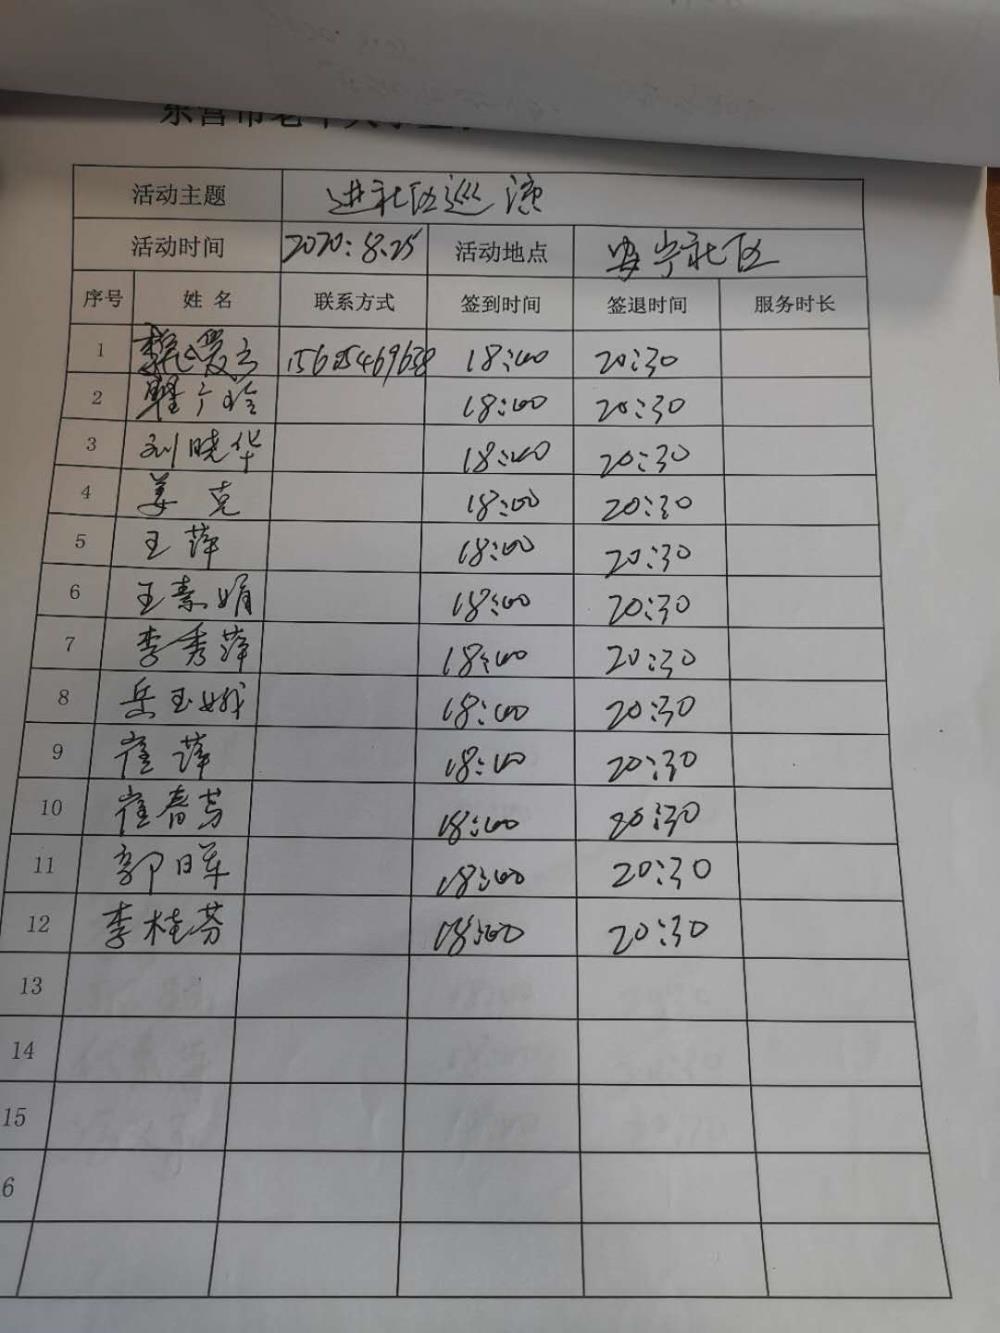 活动主题 进社区巡演
活动时间 2020:8.25 活动地点 安宁社区
序号 姓名 联系方式 签到时间 签退时间 服务时长
1 18:00 20:30
2 18:00 20:30
3 刘晓华 18:00 20:30
4 姜克 18:00 20:30
5 王萍 18:00 20:30
6 王素娟 18:00 20:30
7 李秀萍 18:00 20:30
8 岳玉娥 18:00 20:30
9 崔萍 18:00 20:30
10 崔春芳 18:00 20:30
11 郭日军 18:00 20:30
12 李桂芬 18:00 20:30
13
14
15
6